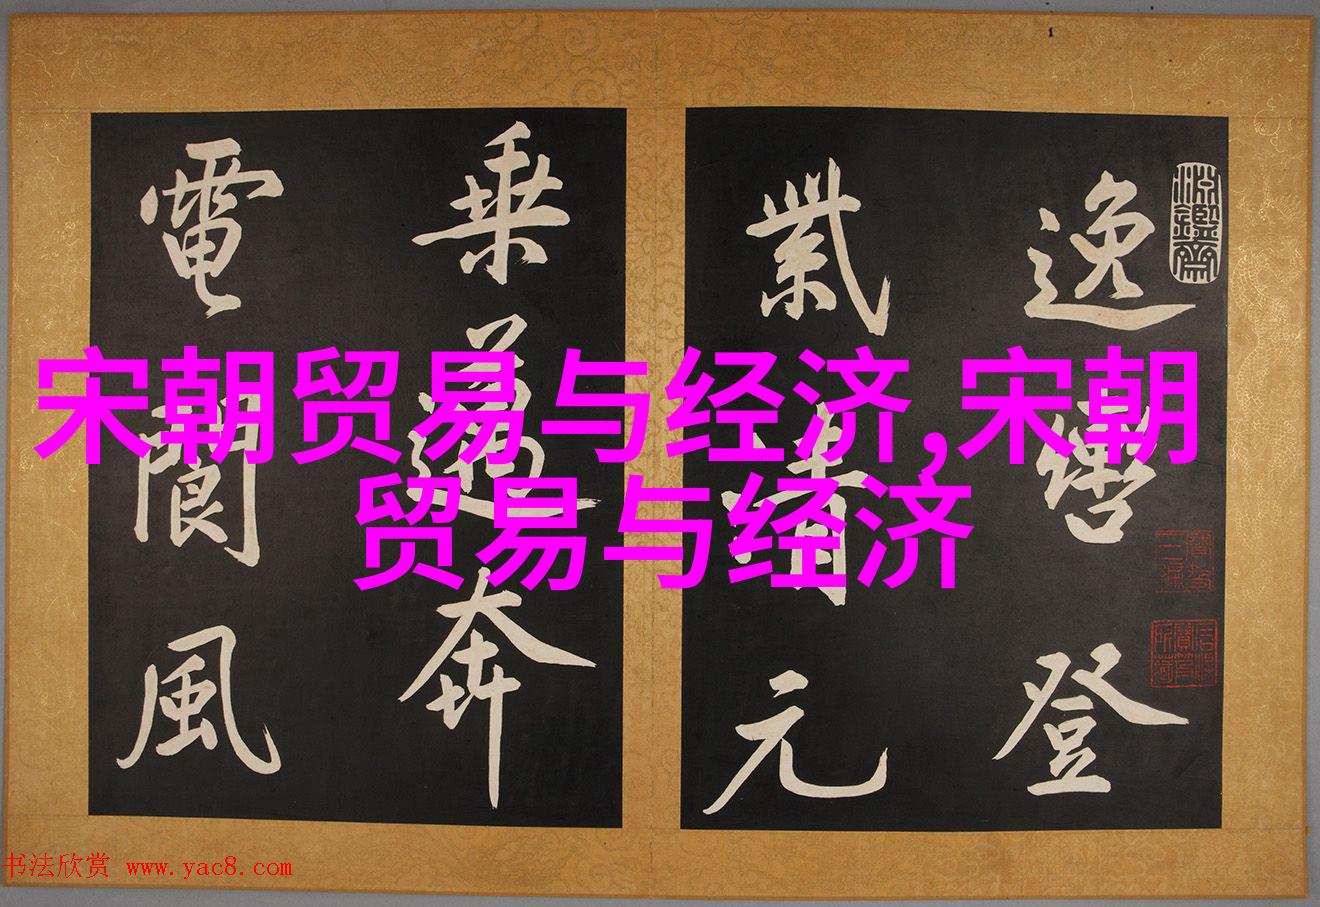 宋朝贸易与经济,宋朝
贸易与经济
逸轡登
紫清元
乘邁奔
電閬風
书法欣赏 www.yac8.com